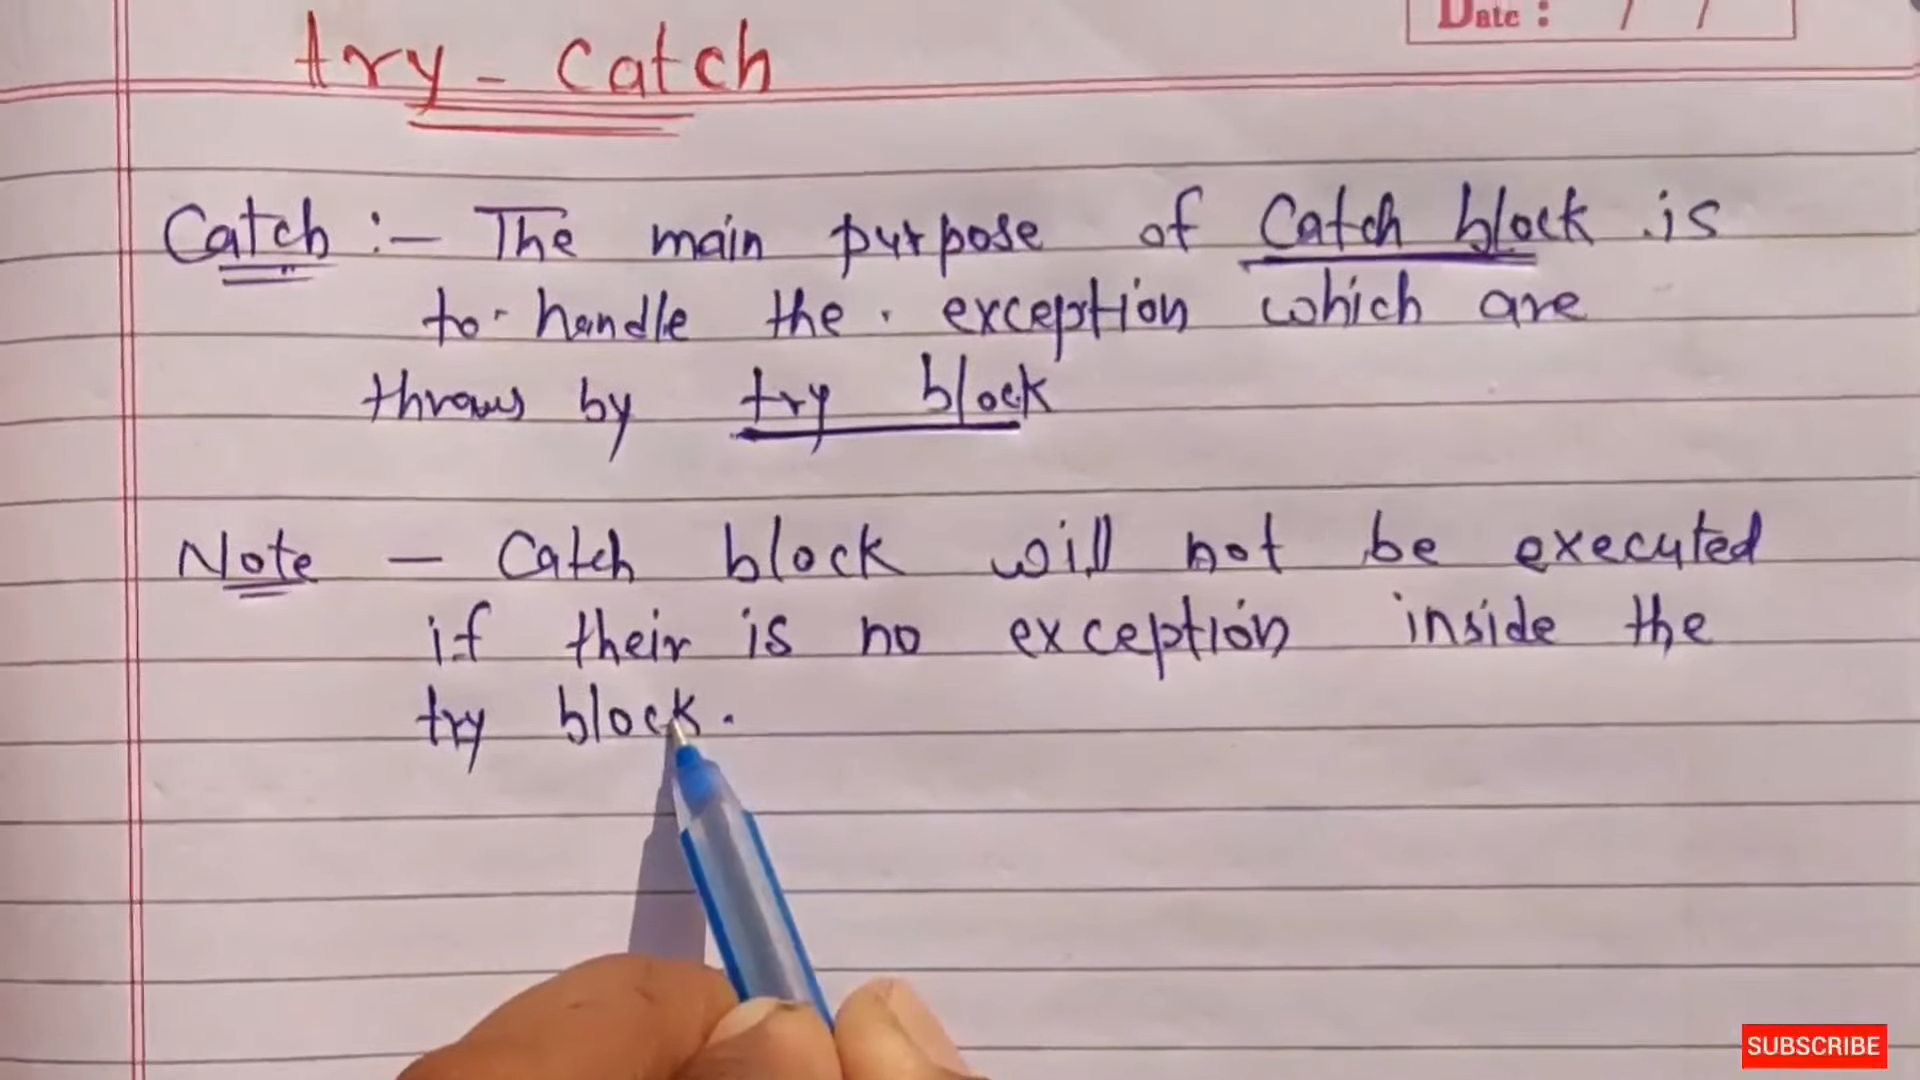 Date : / /
try - catch
Catch :- The main purpose of Catch block is
to handle the exception which are
throws by try block
Note - Catch block will not be executed
if their is no exception inside the
try block.
SUBSCRIBE